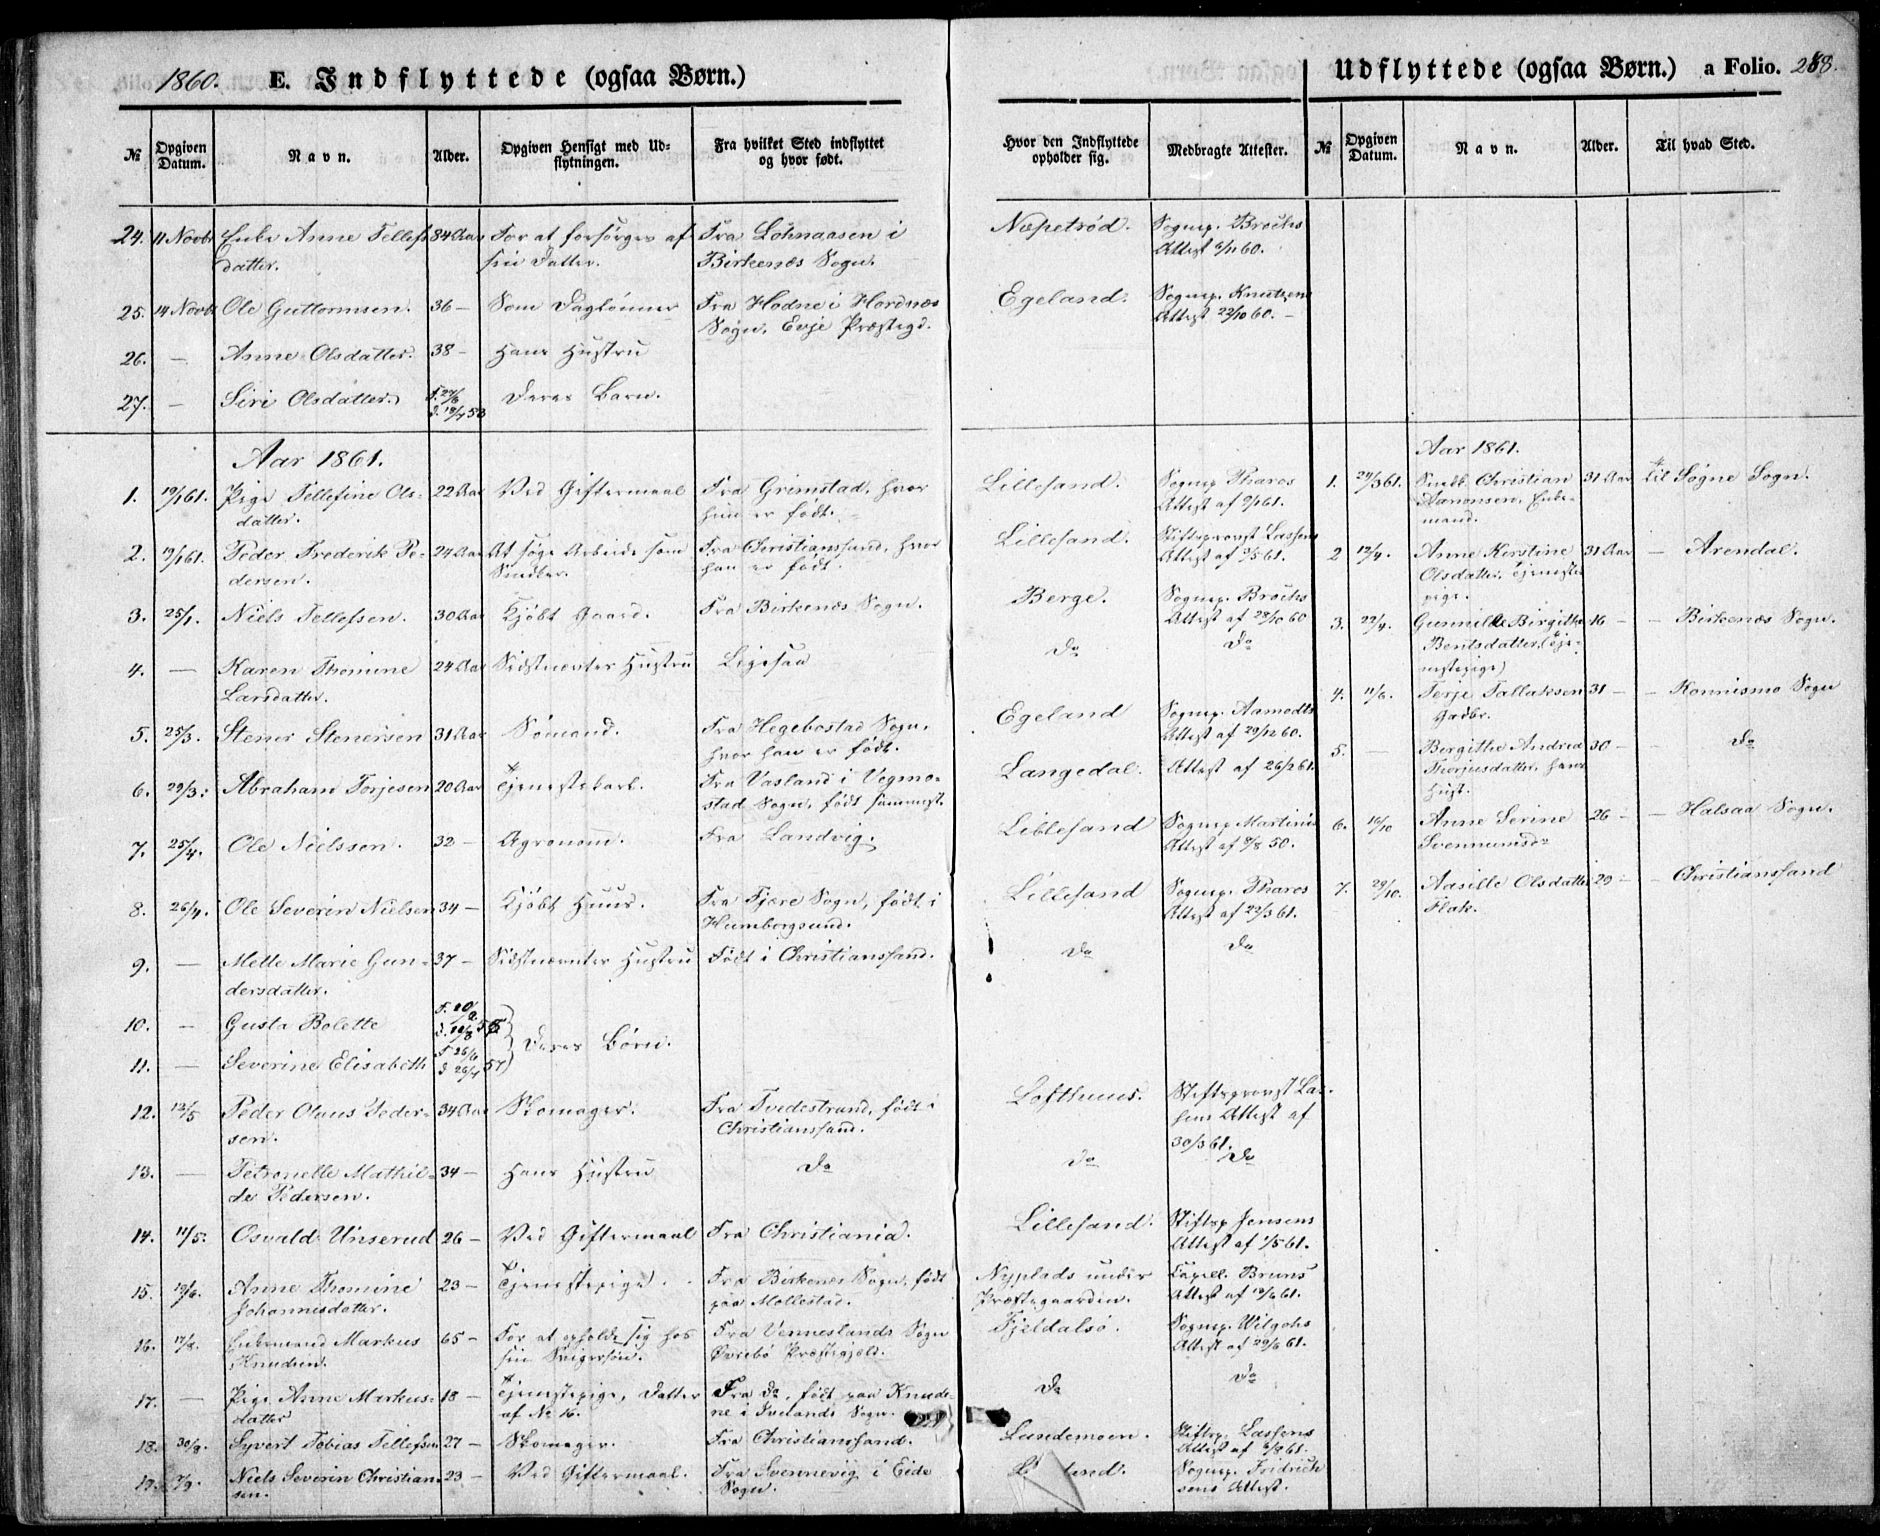 1860. E. Indflyttede (ogsaa Børn.)
№ Opgiven Datum. Navn. Alder. Opgiven Hensigt med Udflytningen. Fra hvilket Sted indflyttet og hvor født.
24. 11 Novbr Enke Anne Tellefs 84 Aar For at forsørges af Fra Lohnaasen i
datter. sin Datter. Birkenæs Sogn.
25. 14 Novbr Ole Guttormsen. 36 – Som Daglønner Fra Hodne i Hordnæs
Sogn, Evje Præstegd.
26. – Anne Olsdatter. 38 – Hans Hustru
27. – Siri Olsdatter. Deres Barn.
Aar 1861.
1. 19/1 61. Pige Tellefine Ols- 22 Aar Ved Giftermaal Fra Grimstad, hvor
datter. hun er født.
2. 19/1 61. Peder Frederik Pe- 24 Aar At søge Arbeide som Fra Christianssand, hvor
dersen. Snedker. han er født.
3. 25/1. Niels Tellefsen. 30 Aar Kjøbt Gaard. Fra Birkenæs Sogn.
4. – Karen Thomine 24 Aar Sidstnævntes Hustru Ligesaa
Larsdatter.
5. 25/3. Stener Stenersen 31 Aar Sømand. Fra Hegebostad Sogn,
hvor han er født.
6. 29/3. Abraham Torjesen 20 Aar Tjenestekarl. Fra Vasland i Vegmo-
stad Sogn, født sammest.
7. 25/4. Ole Nielssen. 32 – Agronom. Fra Landvig.
8. 26/4. Ole Severin Nielsen 34 – Kjøbt Huus. Fra Fjære Sogn, født i
Humborgsund.
9. – Mette Marie Gun- 37 – Sidstnævntes Hustru Født i Christianssand.
dersdatter.
10. – Gusta Bolette
Deres Børn.
11. – Severine Elisabeth
12. 12/5 Peder Olaus Peder- 34 Aar Skomager. Fra Tvedestrand, født i
sen. Christianssand.
13. – Petronelle Mathil- 34 – Hans Hustru Do
de Pedersen.
14. 11/5. Osvald Unserud 26 – Ved Giftermaal Fra Christiania.
15. 19/6. Anne Thomine 23 – Tjenestepige. Fra Birkenæs Sogn, født
Johannisdatter. paa Mollestad.
16. 17/8. Enkemand Markus 65 – For at opholde sig hos Fra Venneslands Sogn
Knudsen. sin Svigersøn. Øvrebø Præstegjeld.
17. – Pige Anne Markus- 18 – Tjenestepige, Datter Fra do, født paa Knude-
datter af № 16. ne i Ivelands Sogn.
18. 30/8. Syvert Tobias Tellefsen 27 – Skomager. Fra Christianssand.
19. 7/9. Niels Severin Christian- 23 – Ved Giftermaal. Fra Svennevig i Eide
sen. Sogn.
Udflyttede (ogsaa Børn.) a Folio. 288.
Hvor den Indflyttede opholder sig. Medbragte Attester. № Opgiven Datum. Navn. Alder. Til hvad Sted.
Næpetrød. Sognep. Brochs
Attest 6/11 60.
Egeland. Sognep. Knutzens
Attest 22/10 60. –
Aar 1861.
Lillesand. Sognep. Tharos 1. 29/3 61. Snedk. Christian 31 Aar til Søgne Sogn.
Attest af 2/1 61. Aanonsen, Enke-
mand.
Lillesand. Stiftsprovst Lassens 2 12/4. Anne Kirstine 31 Aar – Arendal.
Olsdatter, Tjeneste
pige.
Berge. Sognep. Brochs 3. 22/4. Gunnilde Birgithe 16 – – Birkenæs Sogn.
Attest af 28/10 60 Bentsdatter (Tje-
Do Do nestepige)
4. 11/6. Terje Tallaksen 31 – – Konnismo Sogn
Gadbr.
Egeland Sognep. Aamodts
Attest af 29/12 60.
5. – Bergithe Andrea 30 – – Do
Thorjusdatter, hans
Hust.
Langedal. Attest af 26/2 61.
Lillesand Sognep. Martinis 6. 16/10 Anne Serine 26 – – Halsaa Sogn.
Attest af 9/8 50. Svennumsdr
Lillesand Sognep. Tharos 7. 29/10. Aasille Olsdatter 29 – – Christianssand
Attest af 22/3 61. Flak.
Do Do
Lofthuus. Stiftsprovst Las-
sens Attest af
30/3 61.
Do Do
Lillesand. Stiftsp. Jensens
Attest af 1/5 61.
Nyplads under Capell. Bruns
Præstegaarden. Attest af 19/6 61.
Fjeldalsø. Sognep. Wilgohs
Attest af 29/6 61.
Do Do
Lundemoen. Stiftsp. Lassens
Attest af 6/8 61.
Sognep. Fridrich
sens Attest.